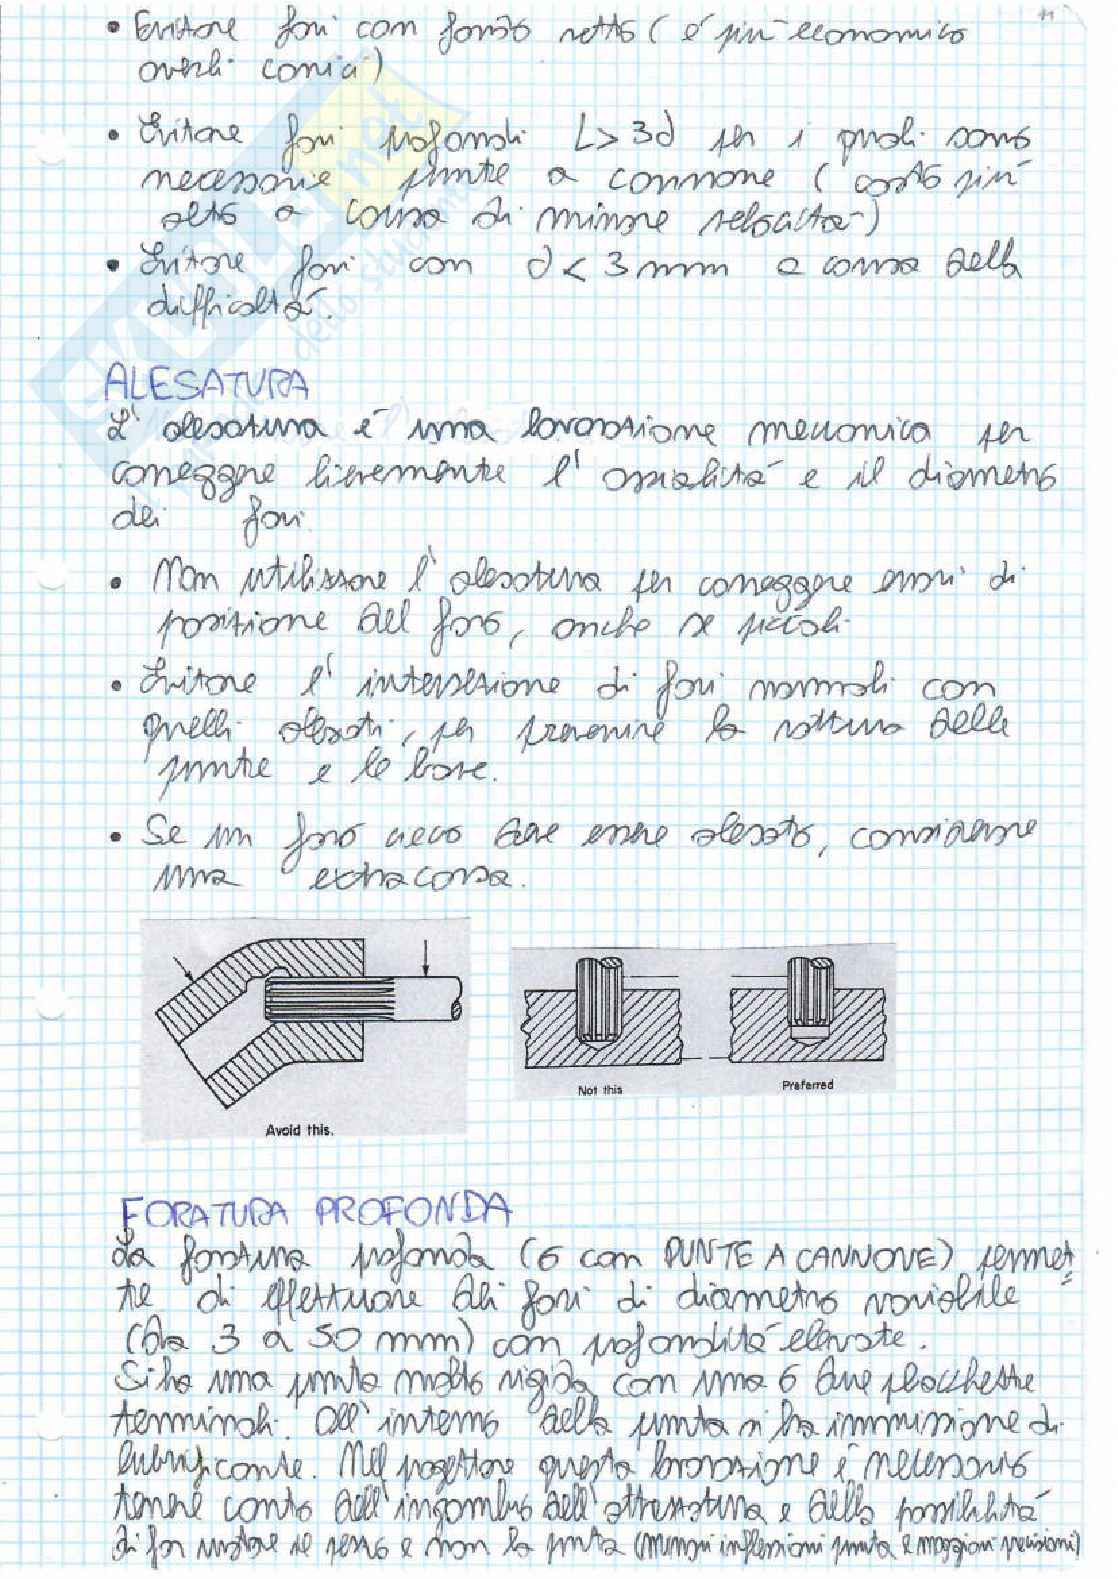 11
• Evitare fori con fondo retto (è più economico
averli conici)
• Evitare fori profondi L>3d per i quali sono
necessarie punte a cannone (costo più
alto a causa di minore velocità)
• Evitare fori con d<3mm a causa della
difficoltà.
ALESATURA
L'alesatura è una lavorazione meccanica per
correggere lievemente l'assialità e il diametro
dei fori.
• Non utilizzare l'alesatura per correggere errori di
posizione del foro, anche se piccoli
• Evitare l'intersezione di fori normali con
quelli alesati, per prevenire la rottura delle
punte e le bave.
• Se un foro cieco deve essere alesato, considerare
una extracorsa.
Avoid this.
Not this
Preferred
FORATURA PROFONDA
La foratura profonda (o con PUNTE A CANNONE) permet=
te di effettuare dei fori di diametro variabile
(da 3 a 50 mm) con profondità elevate.
Si ha una punta molto rigida con una o due placchette
terminali. All'interno della punta si ha immissione di
lubrificante. Nel progettare questa lavorazione è necessario
tenere conto dell'ingombro dell'attrezzatura e della possibilità
di far ruotare il pezzo e non la punta (minori inflessioni punta e maggiori precisioni)